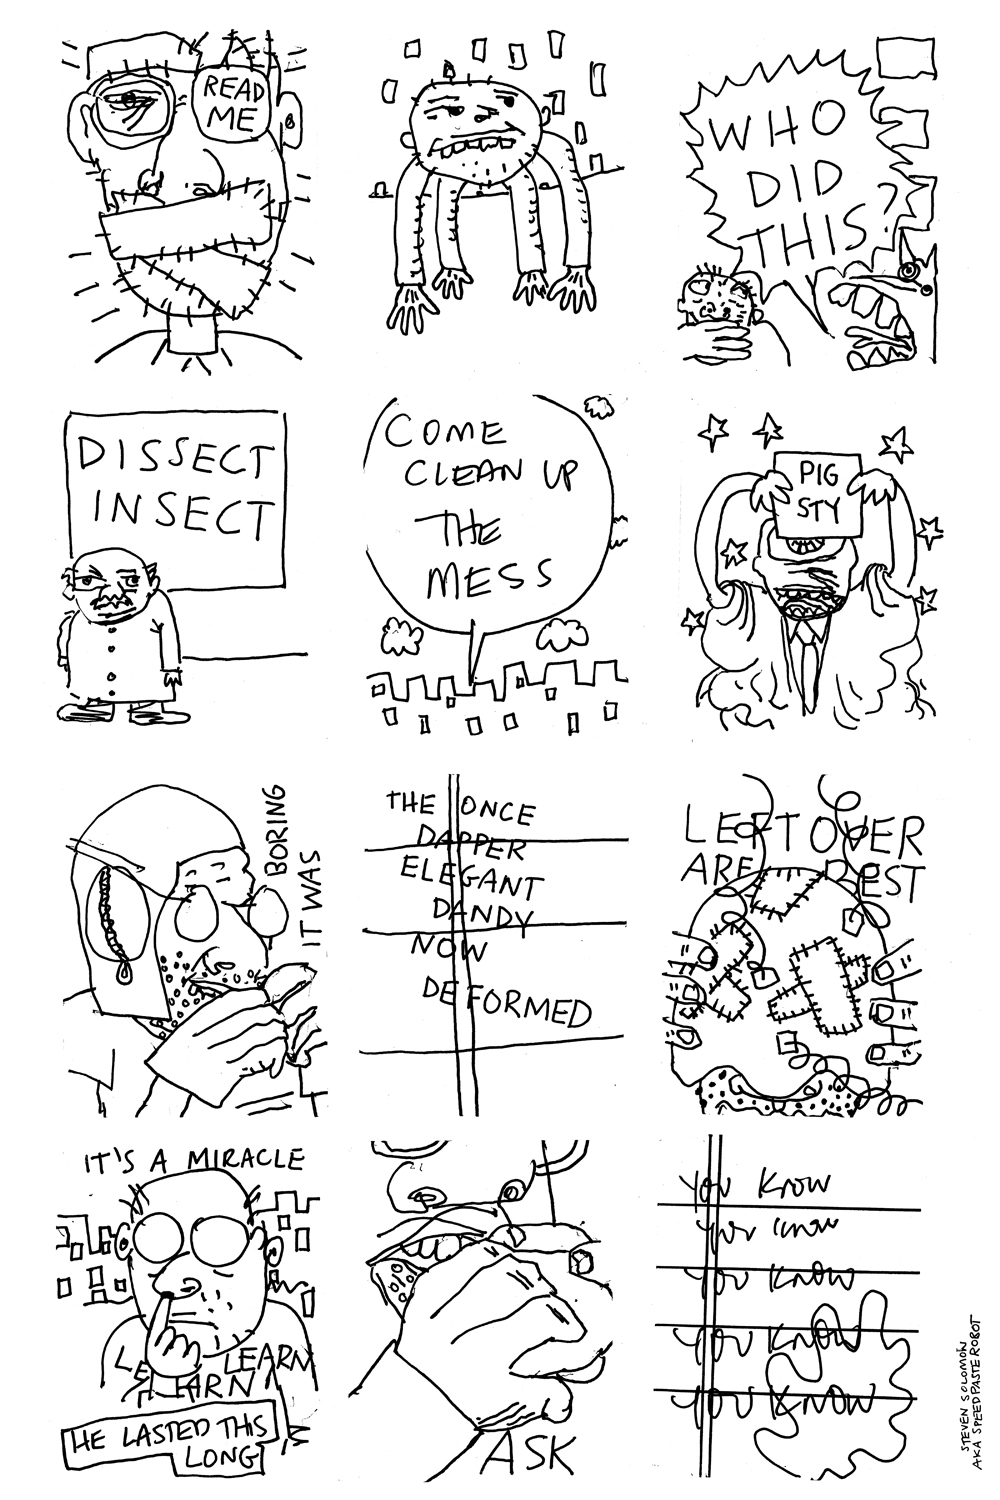 READ
ME
WHO
DID
THIS?
DISSECT
INSECT
COME
CLEAN UP
THE
MESS
PIG
STY
BORING
IT WAS
THE ONCE
DAPPER
ELEGANT
DANDY
NOW
DEFORMED
LEFT OVER
ARE BEST
IT'S A MIRACLE
LE LEARN
EARN
HE LASTED THIS
LONG
ASK
You Know
You Know
You Know
You Know
You Know
STEVEN SOLOMON
AKA SPEED PASTE ROBOT